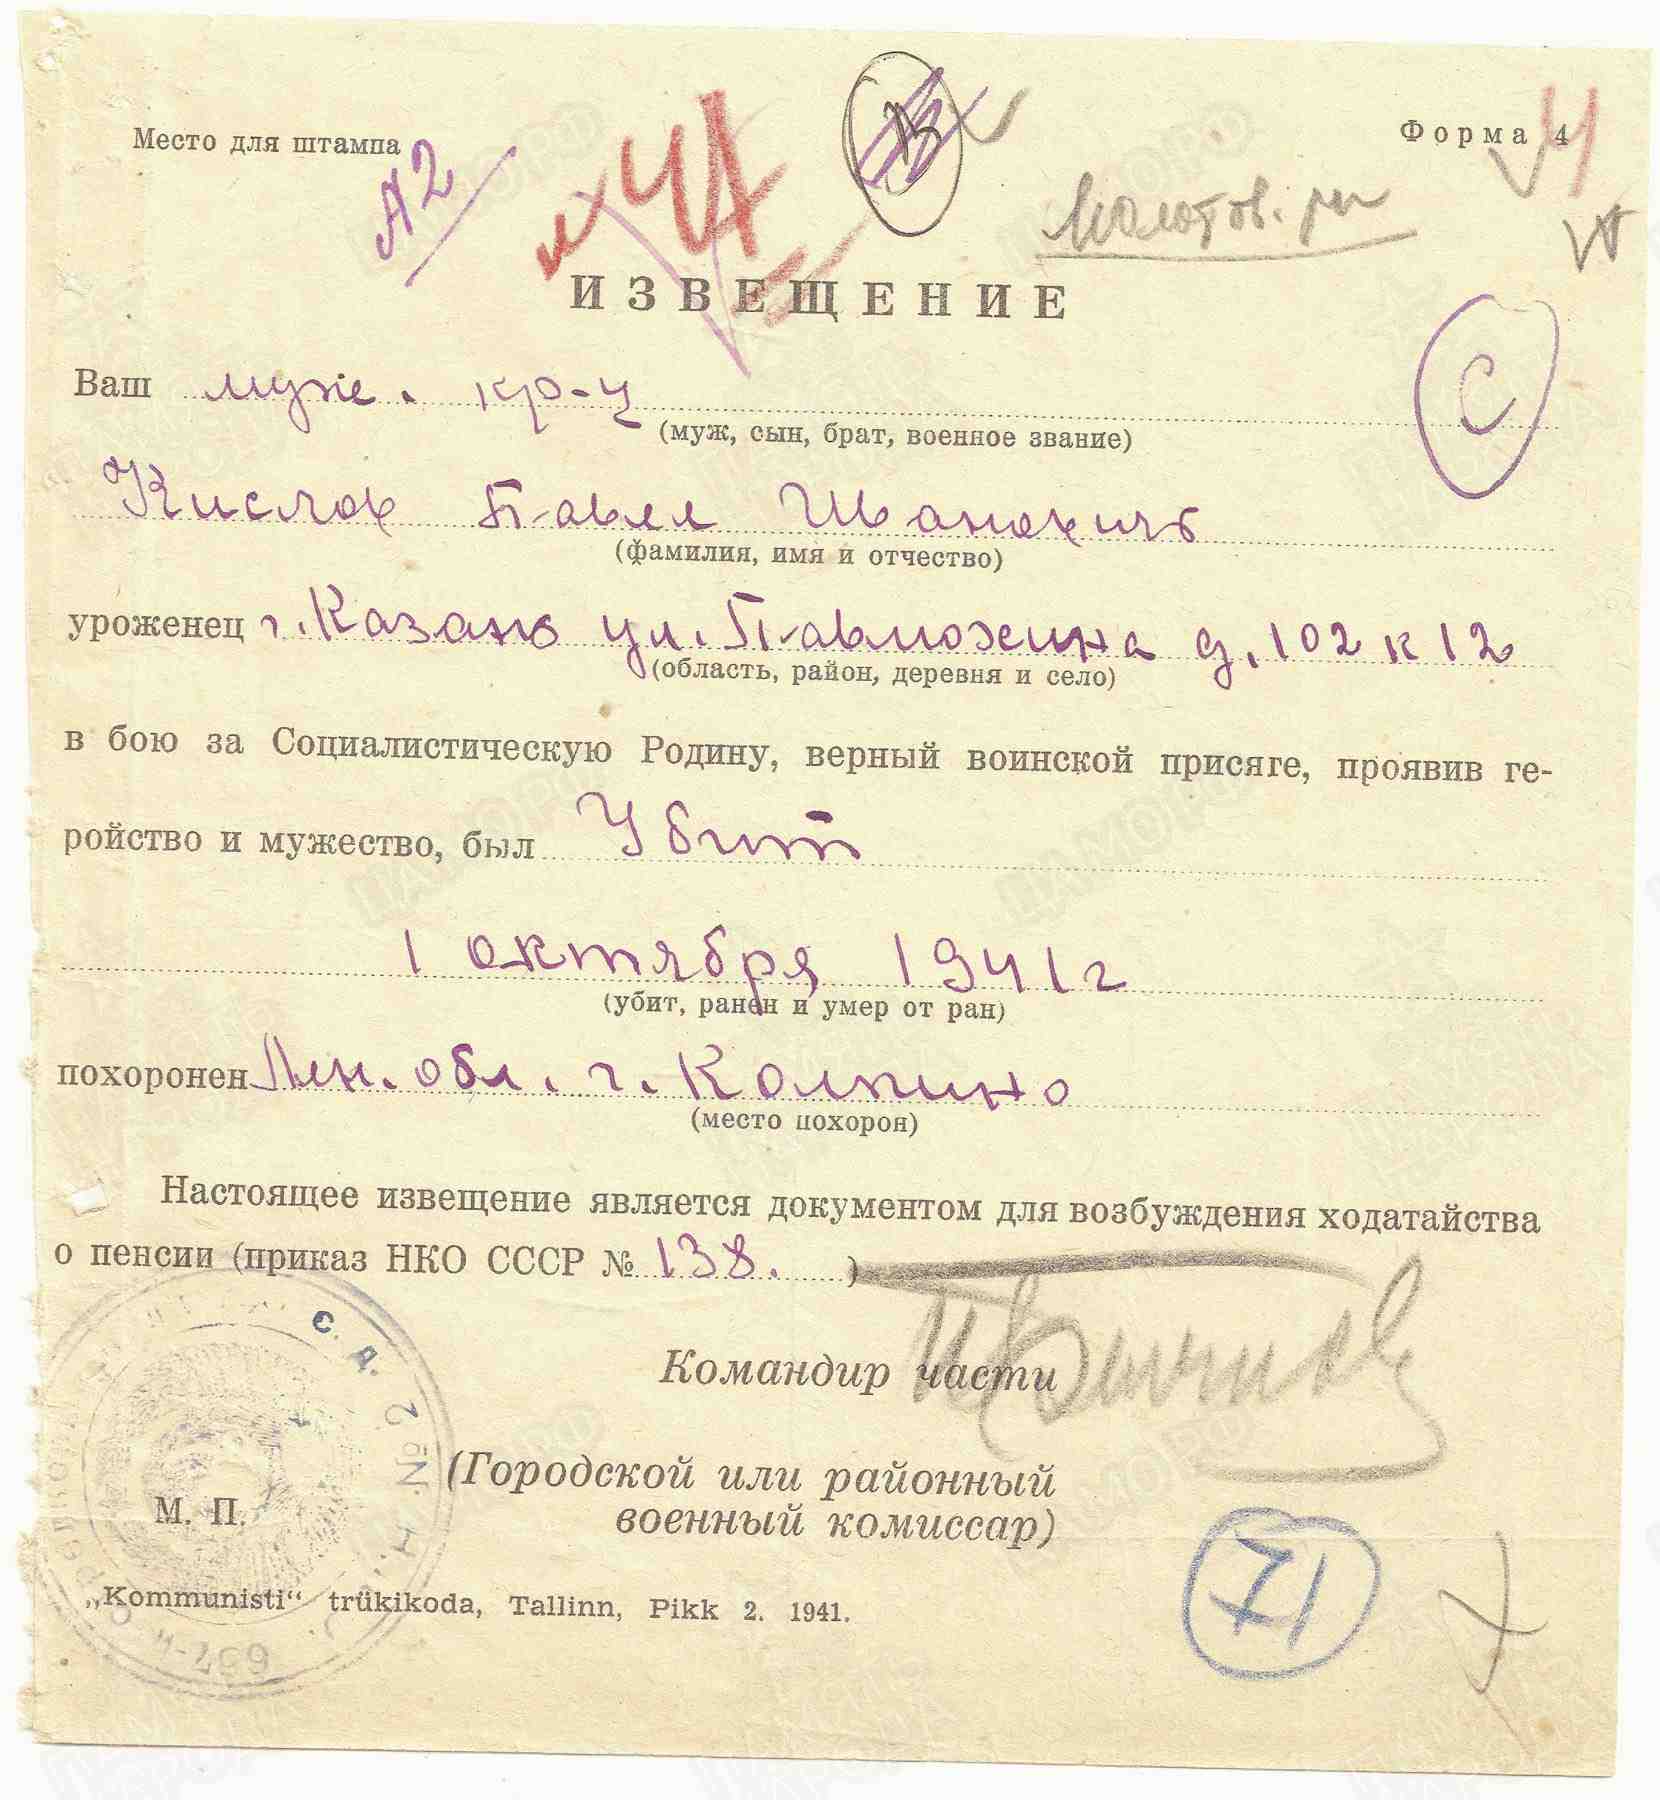 Место для штампа
Форма 4
А2
Молотов. рн
ИЗВЕЩЕНИЕ
С
Ваш муж. кр-ц
(муж, сын, брат, военное звание)
Кислов Павел Иванович
(фамилия, имя и отчество)
уроженец г. Казань ул. Павлюхина д. 102 к 12
(область, район, деревня и село)
в бою за Социалистическую Родину, верный воинской присяге, проявив ге-
ройство и мужество, был Убит
1 октября 1941 г
(убит, ранен и умер от ран)
похоронен Лен. обл. г. Колпино
(место похорон)
Настоящее извещение является документом для возбуждения ходатайства
о пенсии (приказ НКО СССР № 138. )
Командир части
(Городской или районный
военный комиссар)
М. П.
71
„Kommunisti“ trükikoda, Tallinn, Pikk 2. 1941.